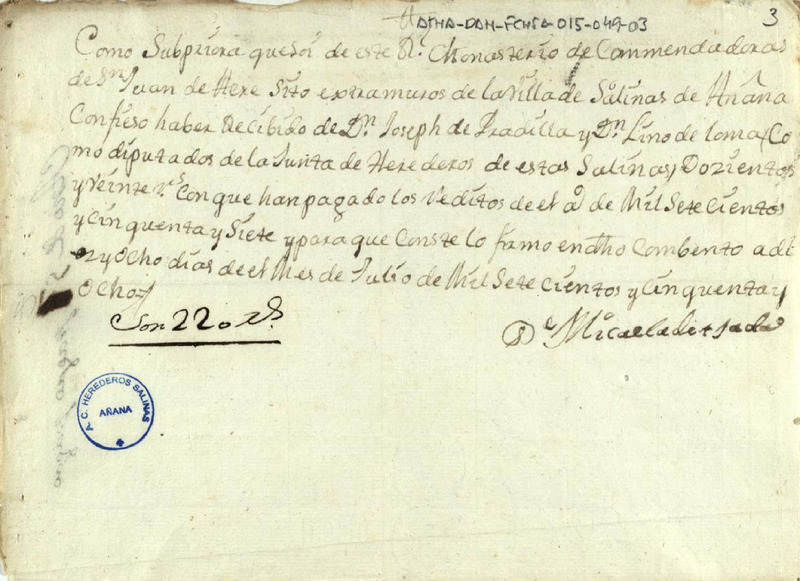 ATHA-DAH-FCHSA-015-049-03
3
Como Subpriora que Soi de este Rl. Monasterio de Commendadoras
de Sn Juan de Acre Sito extramuros de la Villa de Salinas de Añana
Confieso haber Recibido de Dn. Joseph de Pradilla y Dn Lino de loma (Co
mo diputados de la Junta de Herederos de estas Salinas) Dozientos
y Veinte rs. Con que han pagado los Reditos de el añ de Mil Sete Cientos
y Cinquenta y Siete y para que Conste lo firmo en dho Combento a di
ez y Ocho dias de el Mes de Julio de Mil Sete Cientos y Cinquenta y
Ocho
Son 220 rs.
Da. Micaela de
A. C. HEREDEROS SALINAS
AÑANA